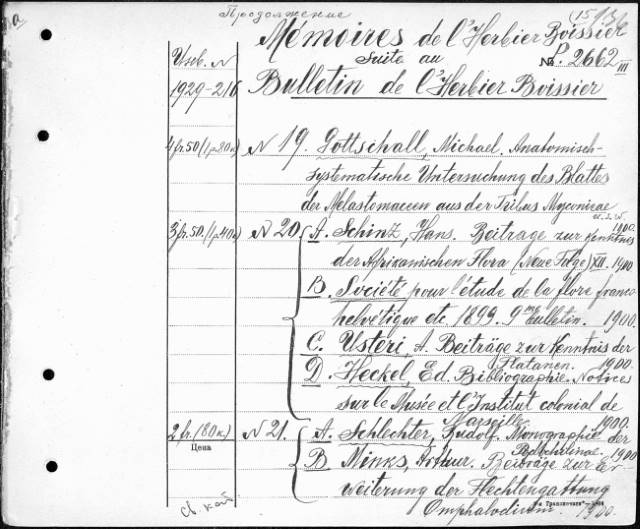 Продолжение
Mémoires de l'Herbier Boissier
Suite au № P. 2662 III
Инв. N
1929-216 Bulletin de l'Herbier Boissier
4 fr. 50 (1р80к) N 19. Gottschall, Michael. Anatomisch-
systematische Untersuchung des Blattes
der Melastomaceen aus der Tribus Myconieae
u.s.w. 1900.
3 fr. 50. (1р40к) N 20 A. Schinz, Hans. Beiträge zur Kenntnis
der Afrikanischen Flora (Neue Folge) XII. 1900
B. Société pour l'étude de la flore franco-
helvétique etc. 1899. 9me Bulletin. 1900.
C. Usteri, A. Beiträge zur Kenntnis der
Platanen. 1900.
D. Heckel, Ed. Bibliographie. Notices
sur le Musée et l'Institut colonial de
Marseille. 1900.
2 fr. (80к) N 21. A. Schlechter, Rudolf. Monographie der
Цена
1900
B Minks, Arthur. Beiträge zur Er-
weiterung der Flechtengattung
Omphalodium. 1900.
св. кат